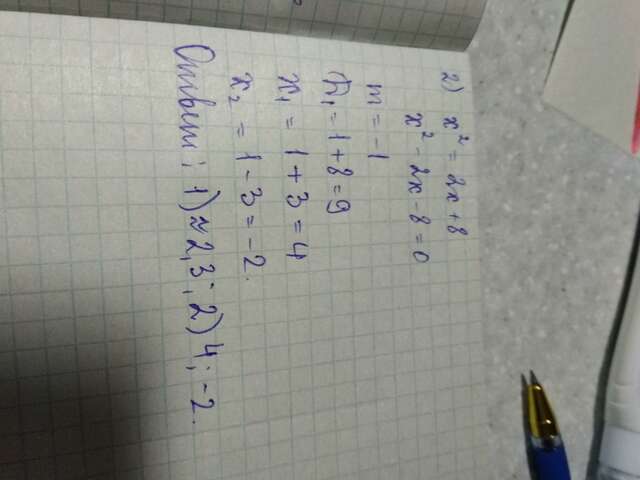 2) x² = 2x + 8
x² - 2x - 8 = 0
m = -1
D₁ = 1 + 8 = 9
x₁ = 1 + 3 = 4
x₂ = 1 - 3 = -2.
Ответ: 1) ≈ 2,3; 2) 4; -2.